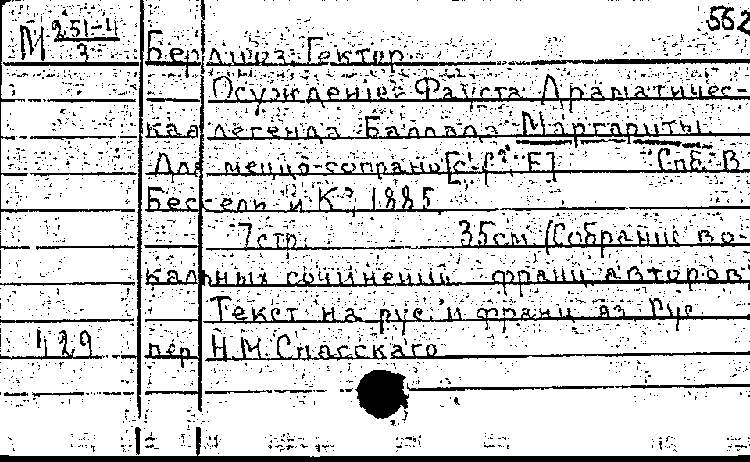 562
М 251-1/3 Берлиоз, Гектор.
Осуждение Фауста. Драматичес-
кая легенда. Баллада Маргариты.
Для меццо-сопрано [c¹-f², F] Спб. В.
Бессель и К°, 1885.
7 стр. 35 см. (Собрание во-
кальных сочинений франц. авторов)
Текст на рус. и франц. яз. Рус.
429 пер. Н.М. Спасскаго